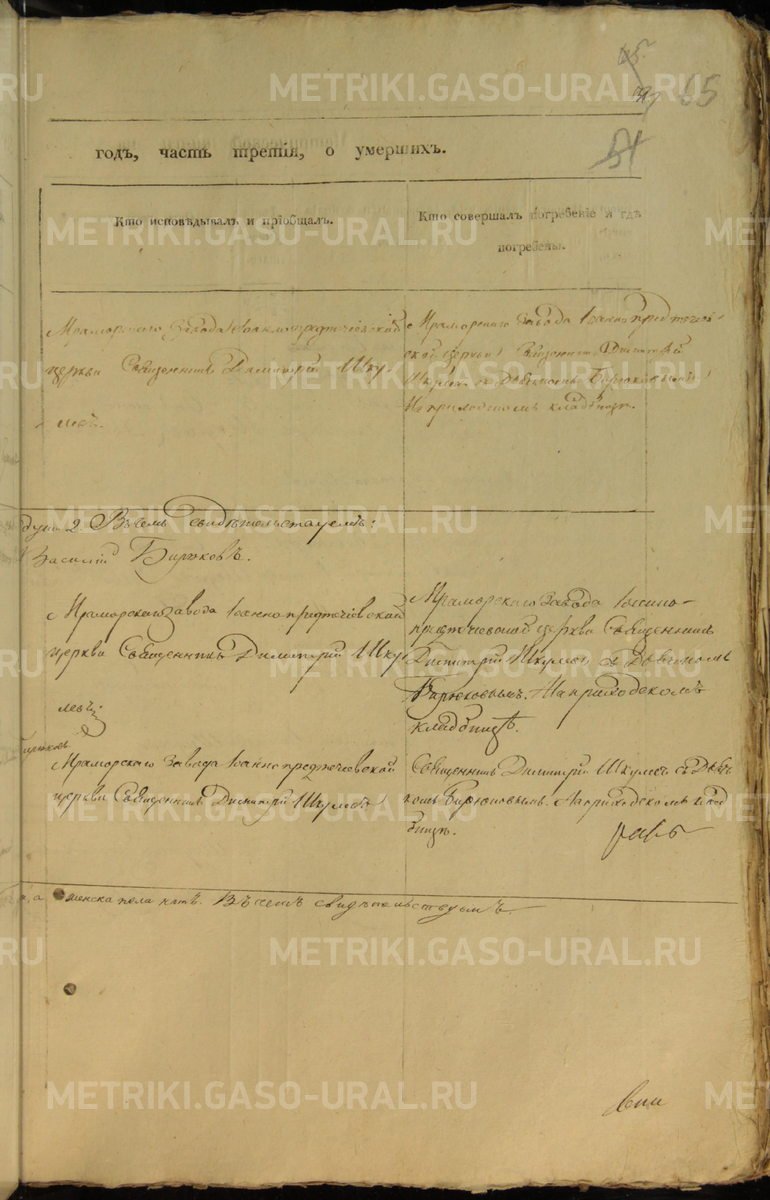 65
годъ, часть третія, о умершихъ.
Кто исповѣдывалъ и пріобщалъ.
Кто совершалъ погребеніе и гдѣ
погребены.
Мраморскаго Завода Іоаннопредтечевской
церкви Священникъ Димитрій Шку-
левъ.
Мраморскаго Завода Іоаннопредтечев-
ской церкви Священникъ Димитрій
Шкулевъ съ Дьячкомъ Бирюковымъ
На приходскомъ кладбищѣ.
2. Въ семъ свидѣтельствуемъ:
Василій Бирюковъ.
Мраморскаго завода Іоаннопредтечевской
церкви Священникъ Димитрій Шку-
левъ.
Мраморскаго Завода Іоанно-
предтечевской церкви Священникъ
Димитрій Шкулевъ съ Дьячкомъ
Бирюковымъ. На приходскомъ
кладбищѣ.
Бирюковъ
Мраморскаго Завода Іоаннопредтечевской
церкви Священникъ Димитрій Шкулевъ
Священникъ Димитрій Шкулевъ съ Дьяч
комъ Бирюковымъ. На приходскомъ клад
бищѣ.
а женска пола нѣтъ. Въ чемъ свидѣтельствуемъ
METRIKI.GASO-URAL.RU